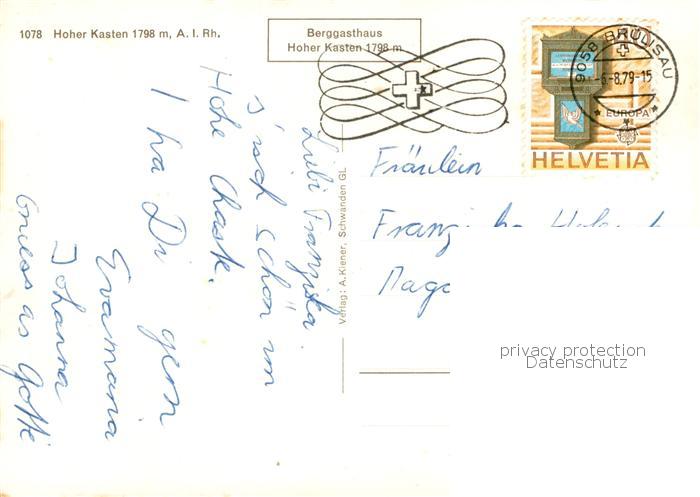 1078 Hoher Kasten 1798 m, A. I. Rh.
Berggasthaus
Hoher Kasten 1798 m
9058 BRÜLISAU
-6.-8.79-15
EUROPA
HELVETIA
Liebi Franziska
s'isch schön im
Hohe Chaste.
I ha Di gern
Evamaria
Johanna
Gruess as Gotti
Verlag: A. Kiener, Schwanden GL
Fräulein
privacy protection
Datenschutz